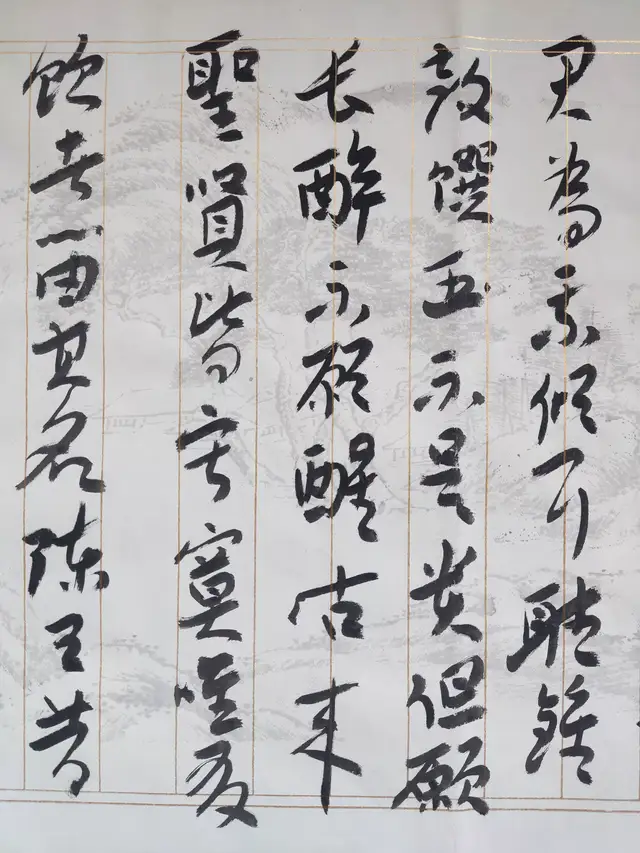 君為我傾耳聽鐘
鼓饌玉不足貴但願
长醉不願醒古来
聖賢皆寂寞唯有
飲者留其名陳王昔